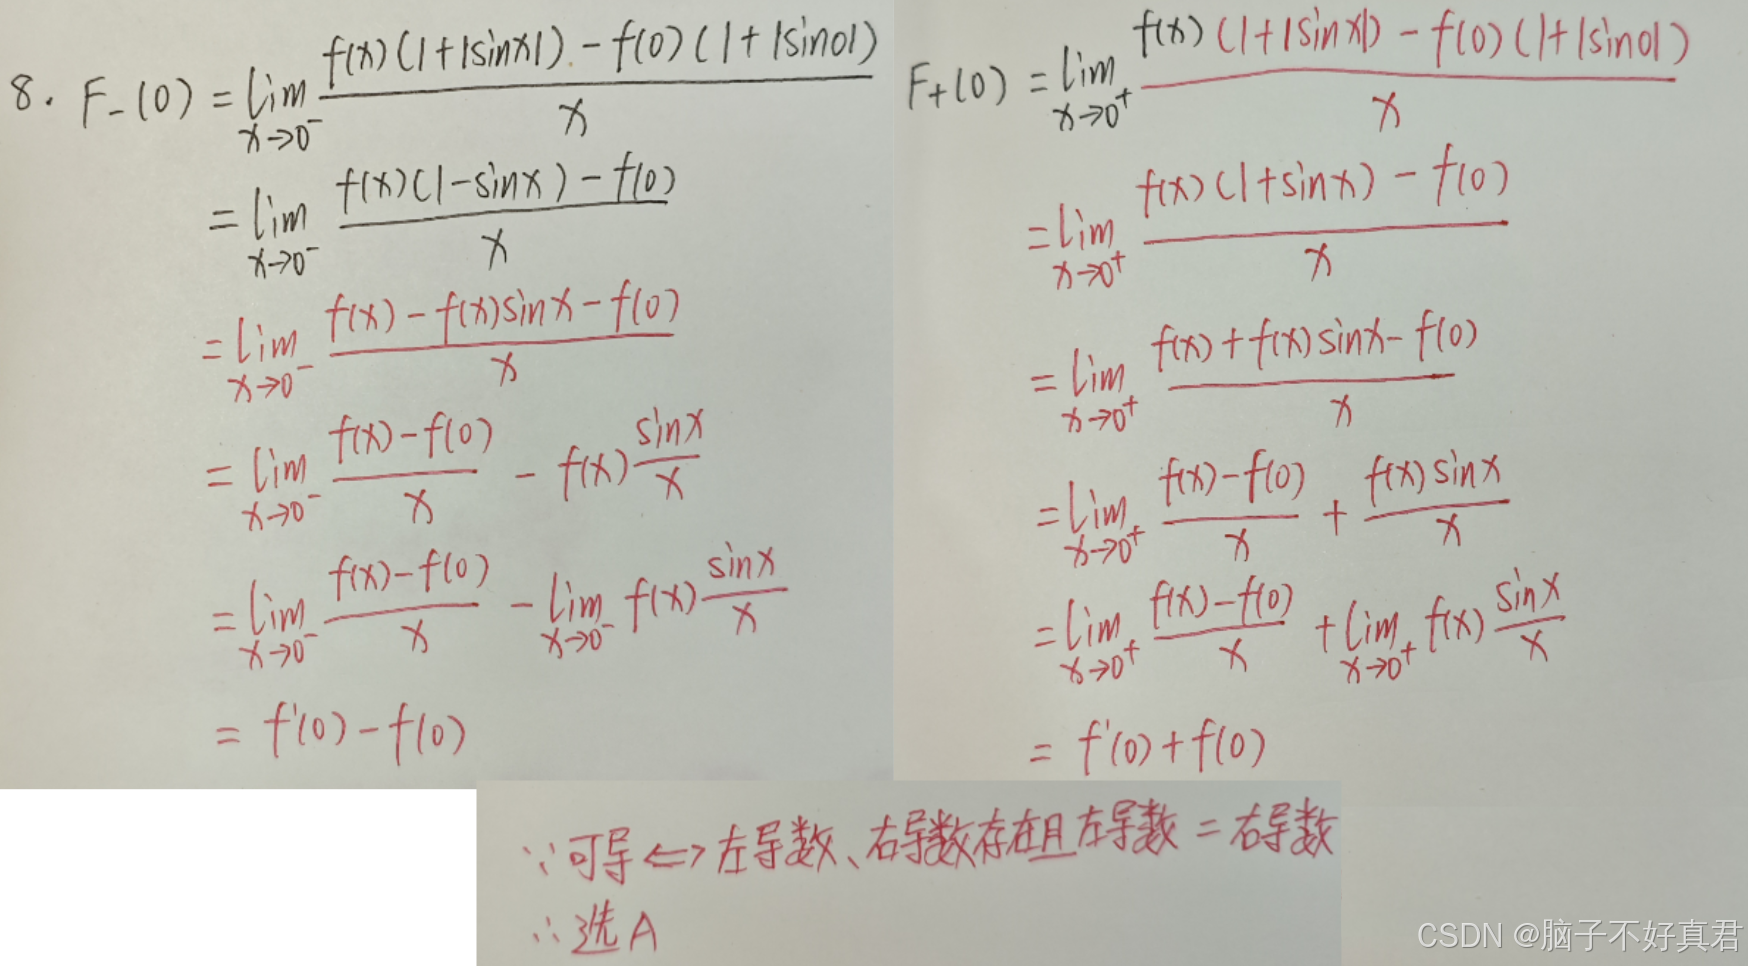 8. F₋(0) = lim x→0⁻ f(x)(1+|sinx|) - f(0)(1+|sin0|) / x
= lim x→0⁻ f(x)(1-sinx) - f(0) / x
= lim x→0⁻ f(x) - f(x)sinx - f(0) / x
= lim x→0⁻ f(x) - f(0) / x - f(x) sinx / x
= lim x→0⁻ f(x) - f(0) / x - lim x→0⁻ f(x) sinx / x
= f'(0) - f(0)
F₊(0) = lim x→0⁺ f(x)(1+|sinx|) - f(0)(1+|sin0|) / x
= lim x→0⁺ f(x)(1+sinx) - f(0) / x
= lim x→0⁺ f(x) + f(x)sinx - f(0) / x
= lim x→0⁺ f(x) - f(0) / x + f(x)sinx / x
= lim x→0⁺ f(x) - f(0) / x + lim x→0⁺ f(x) sinx / x
= f'(0) + f(0)
∵可导⟺左导数、右导数存在且左导数=右导数
∴选A
CSDN @脑子不好真君